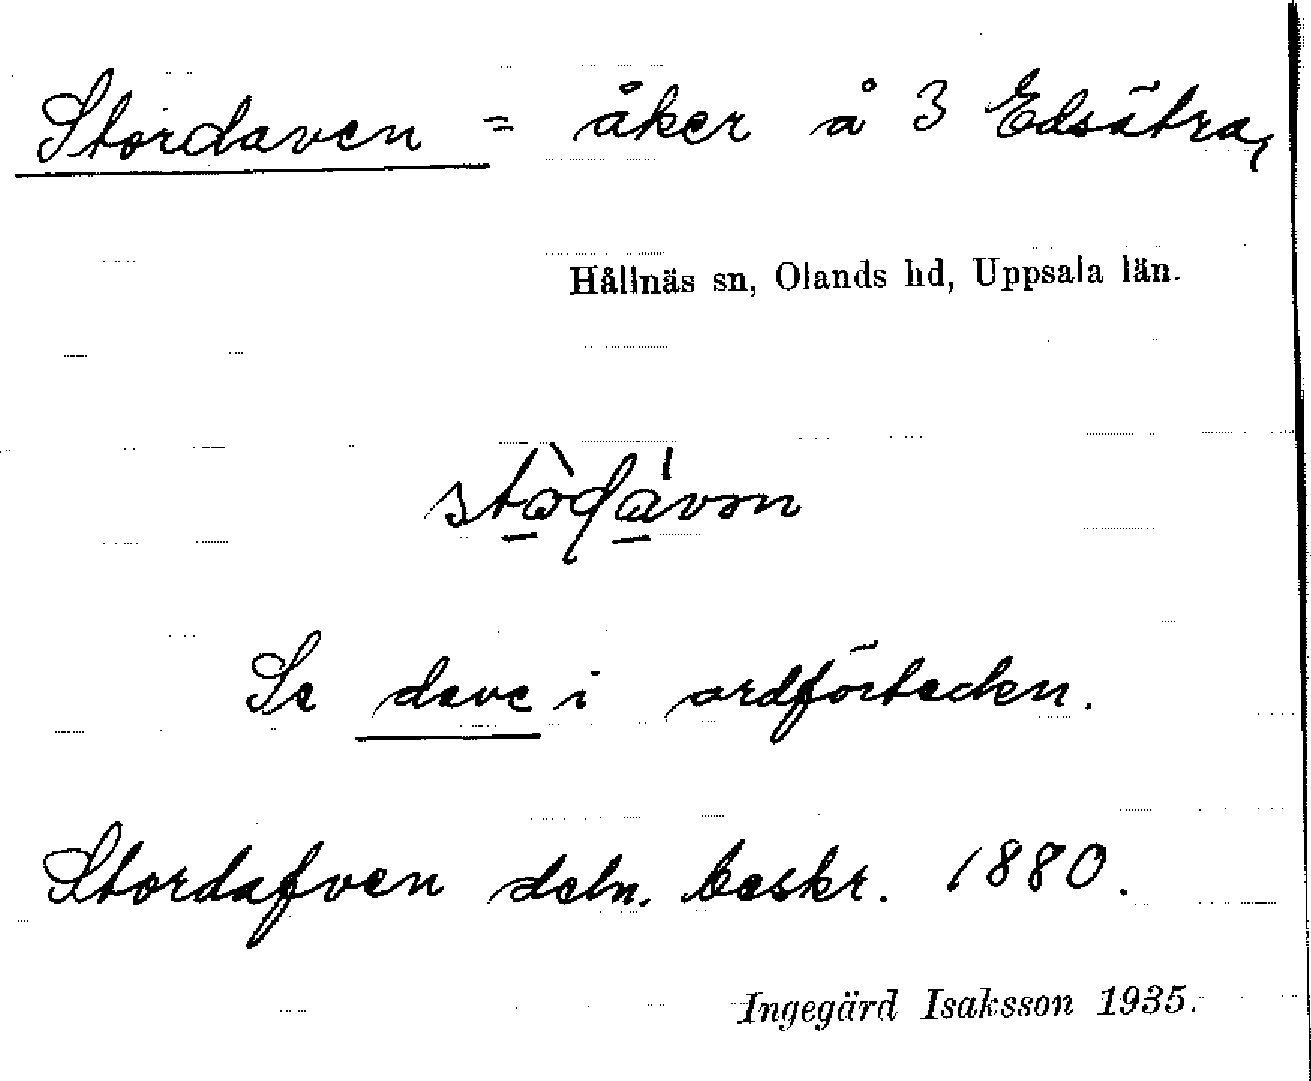 Stordaven = åker å 3 Edsätra,
Hållnäs sn, Olands hd, Uppsala län.
Se dave i ordförteckn.
Stordafven deln. beskr. 1880.
Ingegärd Isaksson 1935.